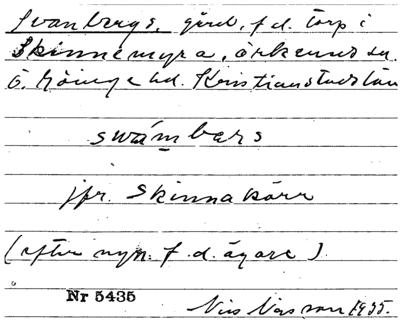 Svanbergs, gård, f.d. torp i
Skinnemyra, Örkeneds sn.
Ö. Göinge hd. Kristianstads län
swámbars
jfr. Skinnakärr
(efter nyn. f.d. ägare).
Nr 5435
Nils Nilsson 1935.